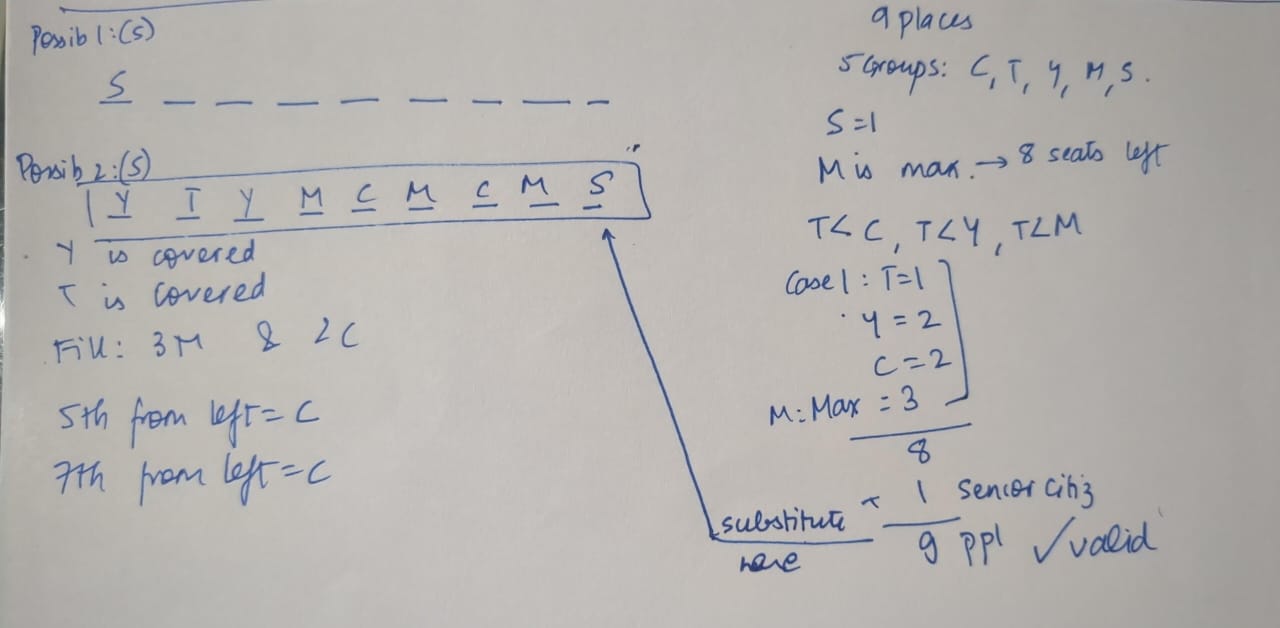 Possib 1:(S)
S _ _ _ _ _ _ _ _
Possib 2:(S)
Y T Y M C M C M S
Y is covered
T is covered
Fill: 3M & 2C
5th from left = C
7th from left = C
9 places
5 Groups: C, T, Y, M, S.
S=1
M is max. → 8 seats left
T< C, T<Y, T<M
Case 1: T=1
Y = 2
C = 2
M: Max = 3
8
1 Senior Citiz
9 ppl ✓valid
substitute
here